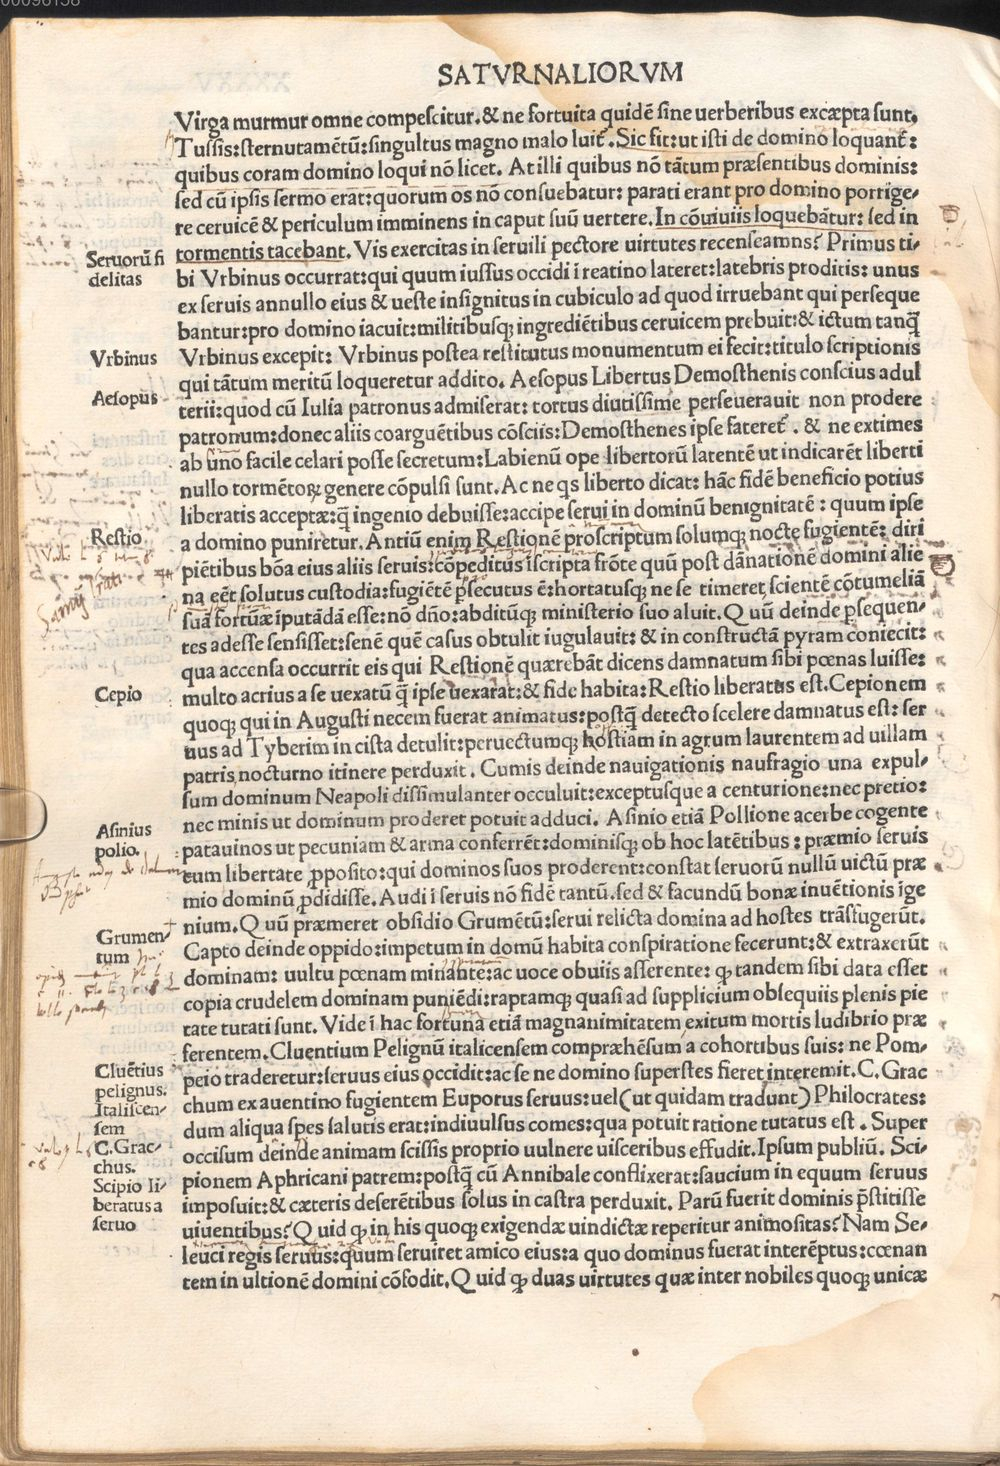 SATVRNALIORVM
Virga murmur omne compeſcitur.& ne fortuita quidē ſine uerberibus excæpta ſunt.
Tuſſis:ſternutamētū:ſingultus magno malo luit̄.Sic fit:ut iſti de domino loquant̄:
quibus coram domino loqui nō licet. At illi quibus nō tātum præſentibus dominis:
ſed cū ipſis ſermo erat:quorum os nō conſuebatur: parati erant pro domino porrige-
re ceruicē & periculum imminens in caput ſuū uertere.In cōuiuiis loquebātur: ſed in
tormentis tacebant. Vis exercitas in ſeruili pectore uirtutes recenſeamns? Primus ti-
bi Vrbinus occurrat:qui quum iuſſus occidi i reatino lateret:latebris proditis: unus
ex ſeruis annullo eius & ueſte inſignitus in cubiculo ad quod irruebant qui perſeque
bantur:pro domino iacuit:militibuſq; ingrediētibus ceruicem prebuit:& ictum tanq̄
Vrbinus excepit: Vrbinus poſtea reſtitutus monumentum ei fecit:titulo ſcriptionis
qui tātum meritū loqueretur addito. Aeſopus Libertus Demoſthenis conſcius adul
terii:quod cū Iulia patronus admiſerat: tortus diutiſſime perſeuerauit non prodere
patronum:donec aliis coarguētibus cōſciis:Demoſthenes ipſe fateret̄ . & ne extimes
ab uno facile celari poſſe ſecretum:Labienū ope libertorū latentē ut indicarēt liberti
nullo tormētoꝝ genere cōpulſi ſunt.Ac ne qs liberto dicat: hāc fidē beneficio potius
liberatis acceptæ:q̄ ingenio debuiſſe:accipe ſerui in dominū benignitatē : quum ipſe
a domino puniretur. Antiū enim Reſtionē proſcriptum ſolumq; nocte fugientē: diri
piētibus bōa eius aliis ſeruis:cōpeditus īſcripta frōte quū poſt dānationē domini alie
na eēt ſolutus cuſtodia:fugiētē p̱ſecutus ē:hortatuſq; ne ſe timeret ſcientē cōtumeliā
ſuā fortūæ iputādā eſſe:nō dn̄o:abditūq; miniſterio ſuo aluit.Q uū deinde p̱ſequen-
tes adeſſe ſenſiſſet:ſenē quē caſus obtulit iugulauit: & in conſtructā pyram coniecit:
qua accenſa occurrit eis qui Reſtionē quærebāt dicens damnatum ſibi pœnas luiſſe:
multo acrius a ſe uexatū q̄ ipſe uexarat:& fide habita:Reſtio liberatus eſt.Cepionem
quoq; qui in Auguſti necem fuerat animatus:poſtq̄ detecto ſcelere damnatus eſt: ſer
uus ad Tyberim in ciſta detulit:peruectumq; hoſtiam in agrum laurentem ad uillam
patris nocturno itinere perduxit . Cumis deinde nauigationis naufragio una expul-
ſum dominum Neapoli diſſimulanter occuluit:exceptuſque a centurione:nec pretio:
nec minis ut dominum proderet potuit adduci. Aſinio etiā Pollione acerbe cogente
patauinos ut pecuniam & arma conferrēt:dominiſq; ob hoc latētibus : præmio ſeruis
cum libertate ꝓpoſito:qui dominos ſuos proderent:conſtat ſeruorū nullū uictū præ
mio dominū ꝓdidiſſe. Audi ī ſeruis nō fidē tantū.ſed & facundū bonæ inuētionis ige
nium.Q uū præmeret obſidio Grumētū:ſerui relicta domina ad hoſtes trāſfugerūt.
Capto deinde oppido:impetum in domū habita conſpiratione fecerunt:& extraxerūt
dominam: uultu pœnam minante:ac uoce obuiis aſſerente: ꝙ tandem ſibi data eſſet
copia crudelem dominam puniēdi:raptamq; quaſi ad ſupplicium obſequiis plenis pie
tate tutati ſunt. Vide ī hac fortuna etiā magnanimitatem exitum mortis ludibrio præ
ferentem.Cluentium Pelignū italicenſem compræhēſum a cohortibus ſuis: ne Pom-
peio traderetur:ſeruus eius occidit:ac ſe ne domino ſuperſtes fieret interemit.C.Grac
chum ex auentino fugientem Euporus ſeruus:uel(ut quidam tradunt)Philocrates:
dum aliqua ſpes ſalutis erat:indiuulſus comes:qua potuit ratione tutatus eſt . Super
occiſum deinde animam ſciſſis proprio uulnere uiſceribus effudit.Ipſum publiū. Sci-
pionem Aphricani patrem:poſtq̄ cū Annibale conflixerat:ſaucium in equum ſeruus
impoſuit:& cæteris deſerētibus ſolus in caſtra perduxit. Parū fuerit dominis p̄ſtitiſſe
uiuentibus?Q uid ꝙ in his quoq; exigendæ uindictæ reperitur animoſitas?Nam Se-
leuci regis ſeruus:quum ſeruiret amico eius:a quo dominus fuerat interēptus:cœnan
tem in ultionē domini cōfodit.Q uid ꝙ duas uirtutes quæ inter nobiles quoq; unicæ
Seruorū fi
delitas
Vrbinus
Aeſopus
Reſtio
Cepio
Aſinius
polio.
Grumen-
tum
Cluētius
pelignus.
Italiſcen-
ſem
C.Grac-
chus.
Scipio li-
beratus a
ſeruo